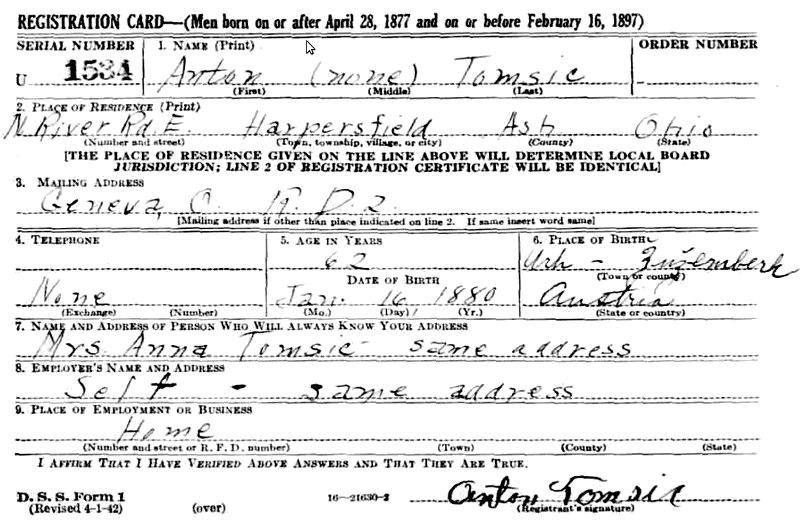 REGISTRATION CARD—(Men born on or after April 28, 1877 and on or before February 16, 1897)
SERIAL NUMBER 1. NAME (Print) ORDER NUMBER
U 1534 Anton (none) Tomsic
(First) (Middle) (Last)
2. PLACE OF RESIDENCE (Print)
N River Rd. E. Harpersfield Ash Ohio
(Number and street) (Town, township, village, or city) (County) (State)
[THE PLACE OF RESIDENCE GIVEN ON THE LINE ABOVE WILL DETERMINE LOCAL BOARD
JURISDICTION; LINE 2 OF REGISTRATION CERTIFICATE WILL BE IDENTICAL]
3. MAILING ADDRESS
Geneva, O. R. D. 2.
[Mailing address if other than place indicated on line 2. If same insert word same]
4. TELEPHONE 5. AGE IN YEARS 6. PLACE OF BIRTH
62 Urh - Žužemberk
(Town or county)
DATE OF BIRTH
None Jan. 16 1880 Austria
(Exchange) (Number) (Mo.) (Day) (Yr.) (State or country)
7. NAME AND ADDRESS OF PERSON WHO WILL ALWAYS KNOW YOUR ADDRESS
Mrs. Anna Tomsic - same address
8. EMPLOYER'S NAME AND ADDRESS
Self - same address
9. PLACE OF EMPLOYMENT OR BUSINESS
Home
(Number and street or R. F. D. number) (Town) (County) (State)
I AFFIRM THAT I HAVE VERIFIED ABOVE ANSWERS AND THAT THEY ARE TRUE.
D. S. S. Form 1
(Revised 4-1-42) (over) 16—21630-2 Anton Tomsic
(Registrant's signature)